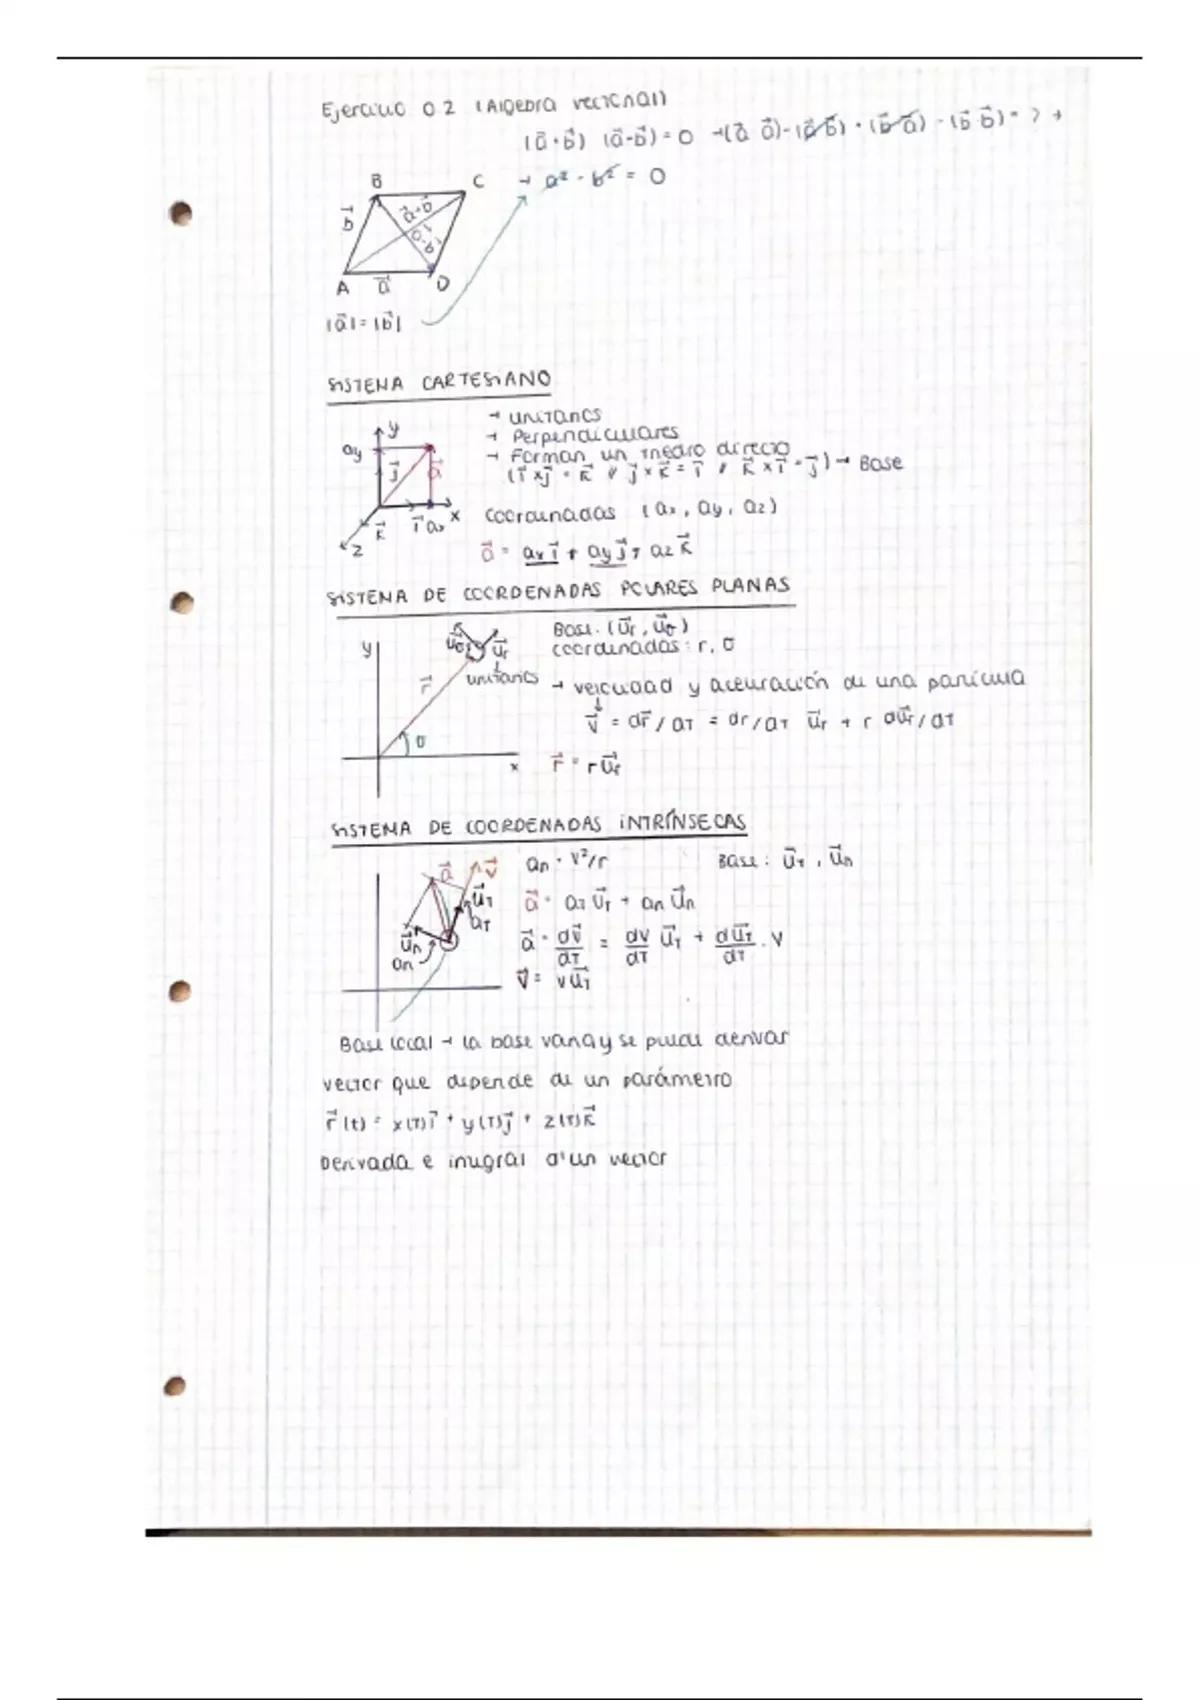 Ejercicio 0.2 (Algebra vectorial)
(a⃗+b⃗) (a⃗-b⃗) = 0 → (a⃗ a⃗) - (a⃗ b⃗) + (b⃗ a⃗) - (b⃗ b⃗) = ? →
→ a² - b² = 0
B C
b⃗ a⃗+b⃗ a⃗-b⃗
A a⃗ D
|a⃗| = |b⃗|
SISTEMA CARTESIANO
→ unitarios
→ Perpendiculares
→ Forman un triedro directo
(i⃗ x j⃗ = k⃗ // j⃗ x k⃗ = i⃗ // k⃗ x i⃗ = j⃗) → Base
y ay j⃗ a⃗
k⃗ i⃗ ax x
z
coordenadas (ax, ay, az)
a⃗ = ax i⃗ + ay j⃗ + az k⃗
SISTEMA DE COORDENADAS POLARES PLANAS
Base: (u⃗r, u⃗θ)
coordenadas: r, θ
y u⃗θ u⃗r
r⃗ unitarios
θ x
→ velocidad y aceleración de una partícula
v⃗ = dr⃗/dT = dr/dT u⃗r + r du⃗r/dT
r⃗ = r u⃗r
SISTEMA DE COORDENADAS INTRÍNSECAS
an = v²/r Base: u⃗T, u⃗n
a⃗ v⃗
u⃗T
aT
u⃗n
an
a⃗ = aT u⃗T + an u⃗n
a⃗ = dv⃗/dT = dv/dT u⃗T + du⃗T/dT . v
v⃗ = v u⃗T
Base local → la base varia y se puede derivar
vector que depende de un parámetro
r⃗(t) = x(T)i⃗ + y(T)j⃗ + z(T)k⃗
Derivada e integral d'un vector